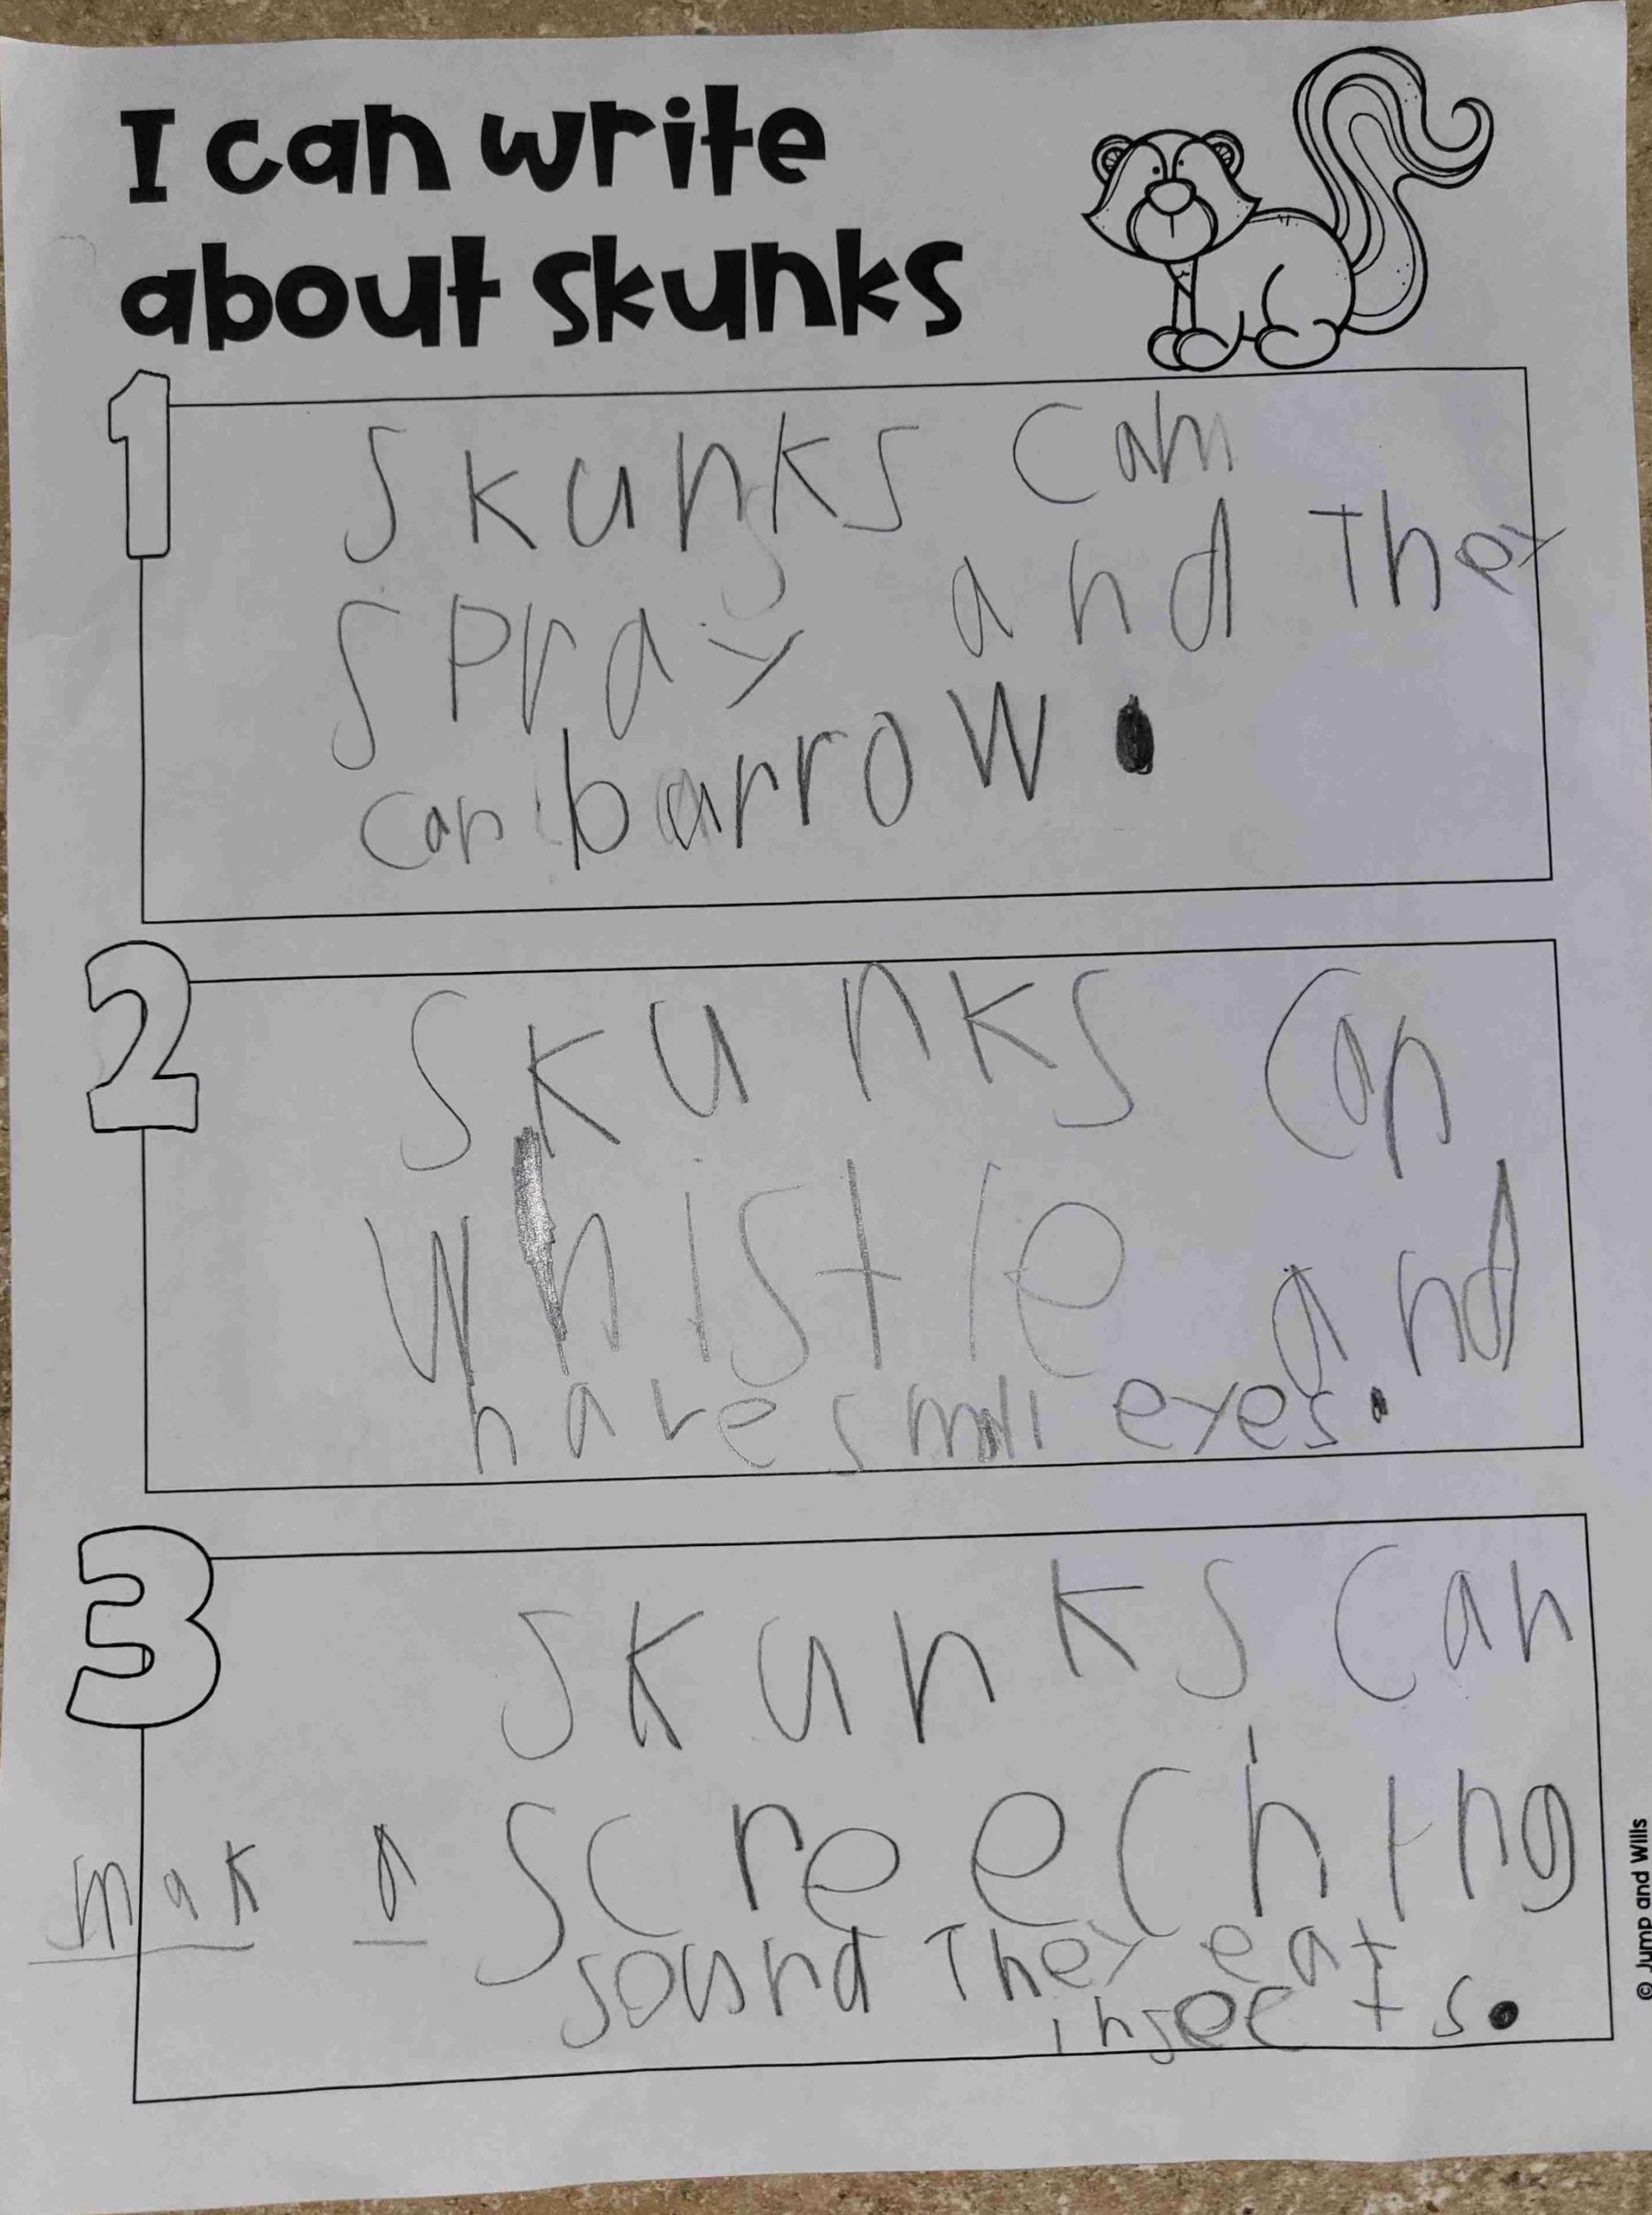 I can write
about skunks
1
Skunks can
spray and They
can barrow.
2
Skunks can
whistle and
have small eyes.
3
Skunks can
mak a screeching
sound They eat
insects.
© Jump and Wills